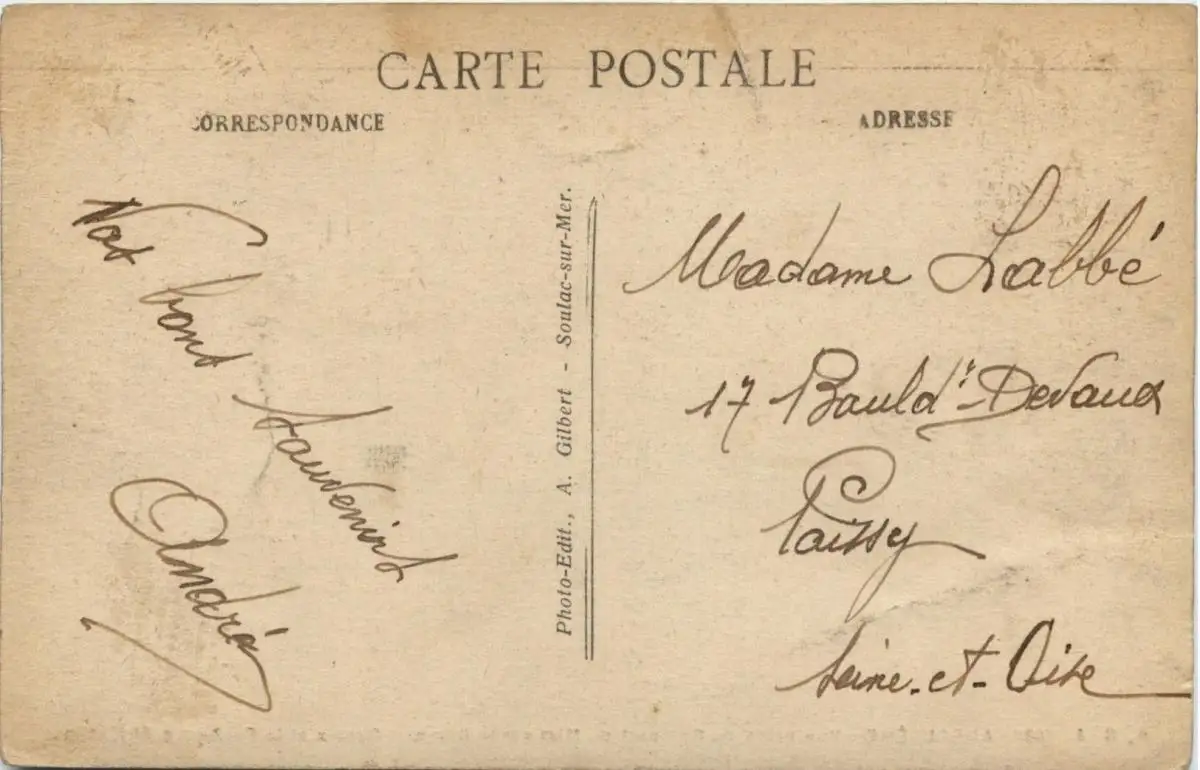 CARTE POSTALE
CORRESPONDANCE
ADRESSE
Nos bons
souvenirs
André
Photo-Edit., A. Gilbert - Soulac-sur-Mer.
Madame Labbé
17 Bould. Devaux
Poissy
Seine-et-Oise